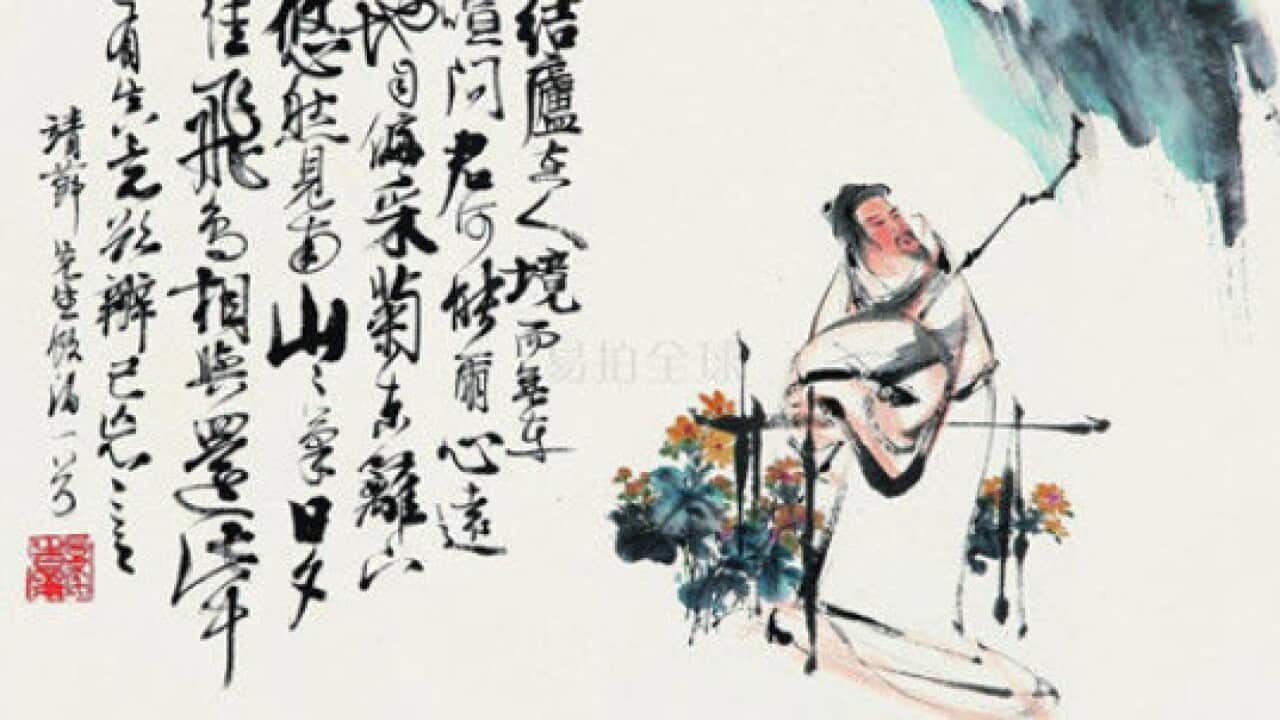 結廬在人境而無車
喧问君何能爾心遠
地自偏采菊東籬下
悠然見南山〻氣日夕
佳飛鳥相與還此中
有真意欲辨已忘言
靖節先生飲酒一首
易拍全球